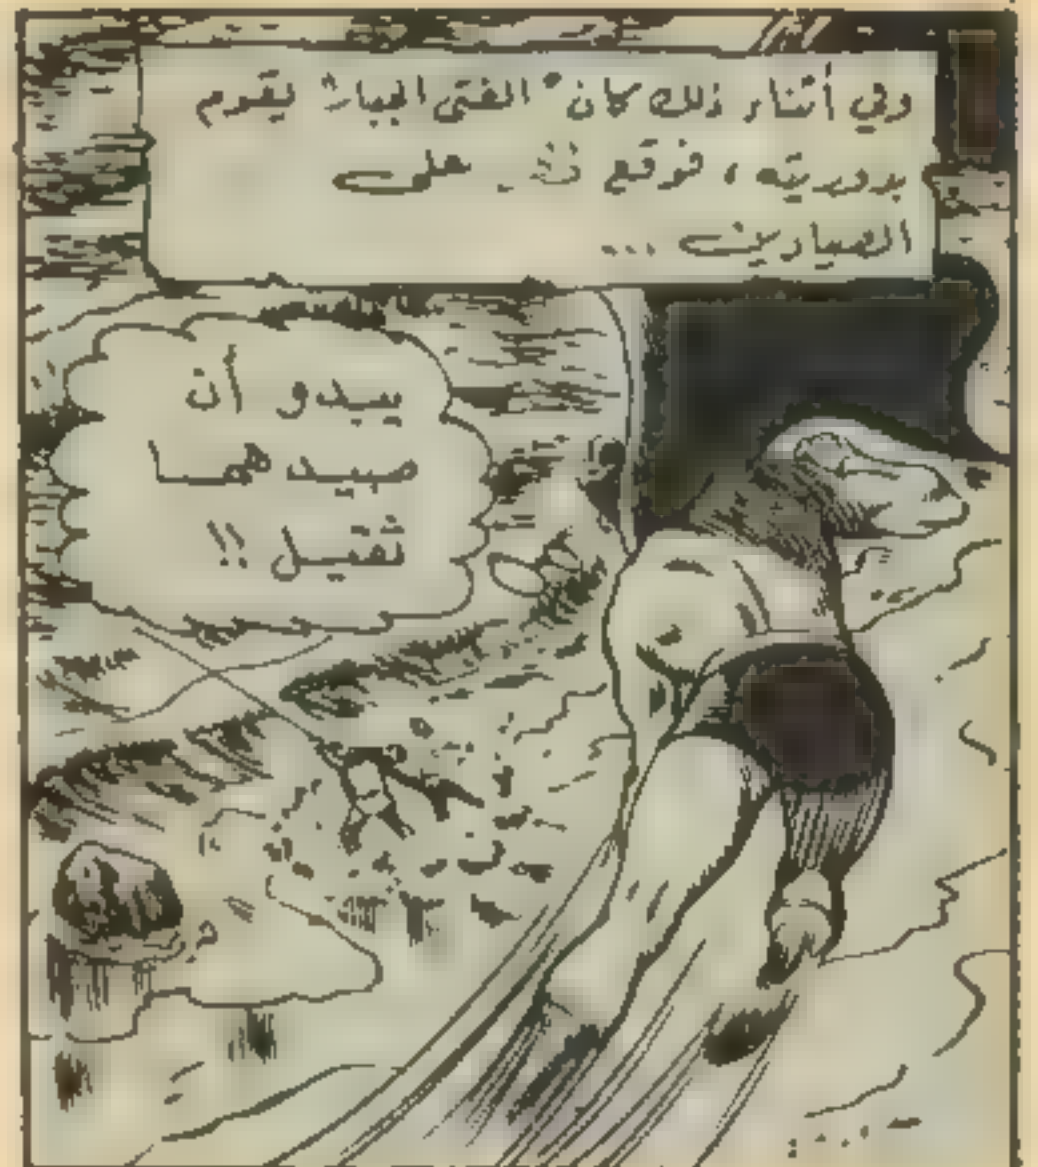 وفي أثناء ذلك كان "الفتى الجبار" يقوم
بدوريته، فوقع على
الصيادين ...
يبدو أن
صيدهما
ثقيل !!